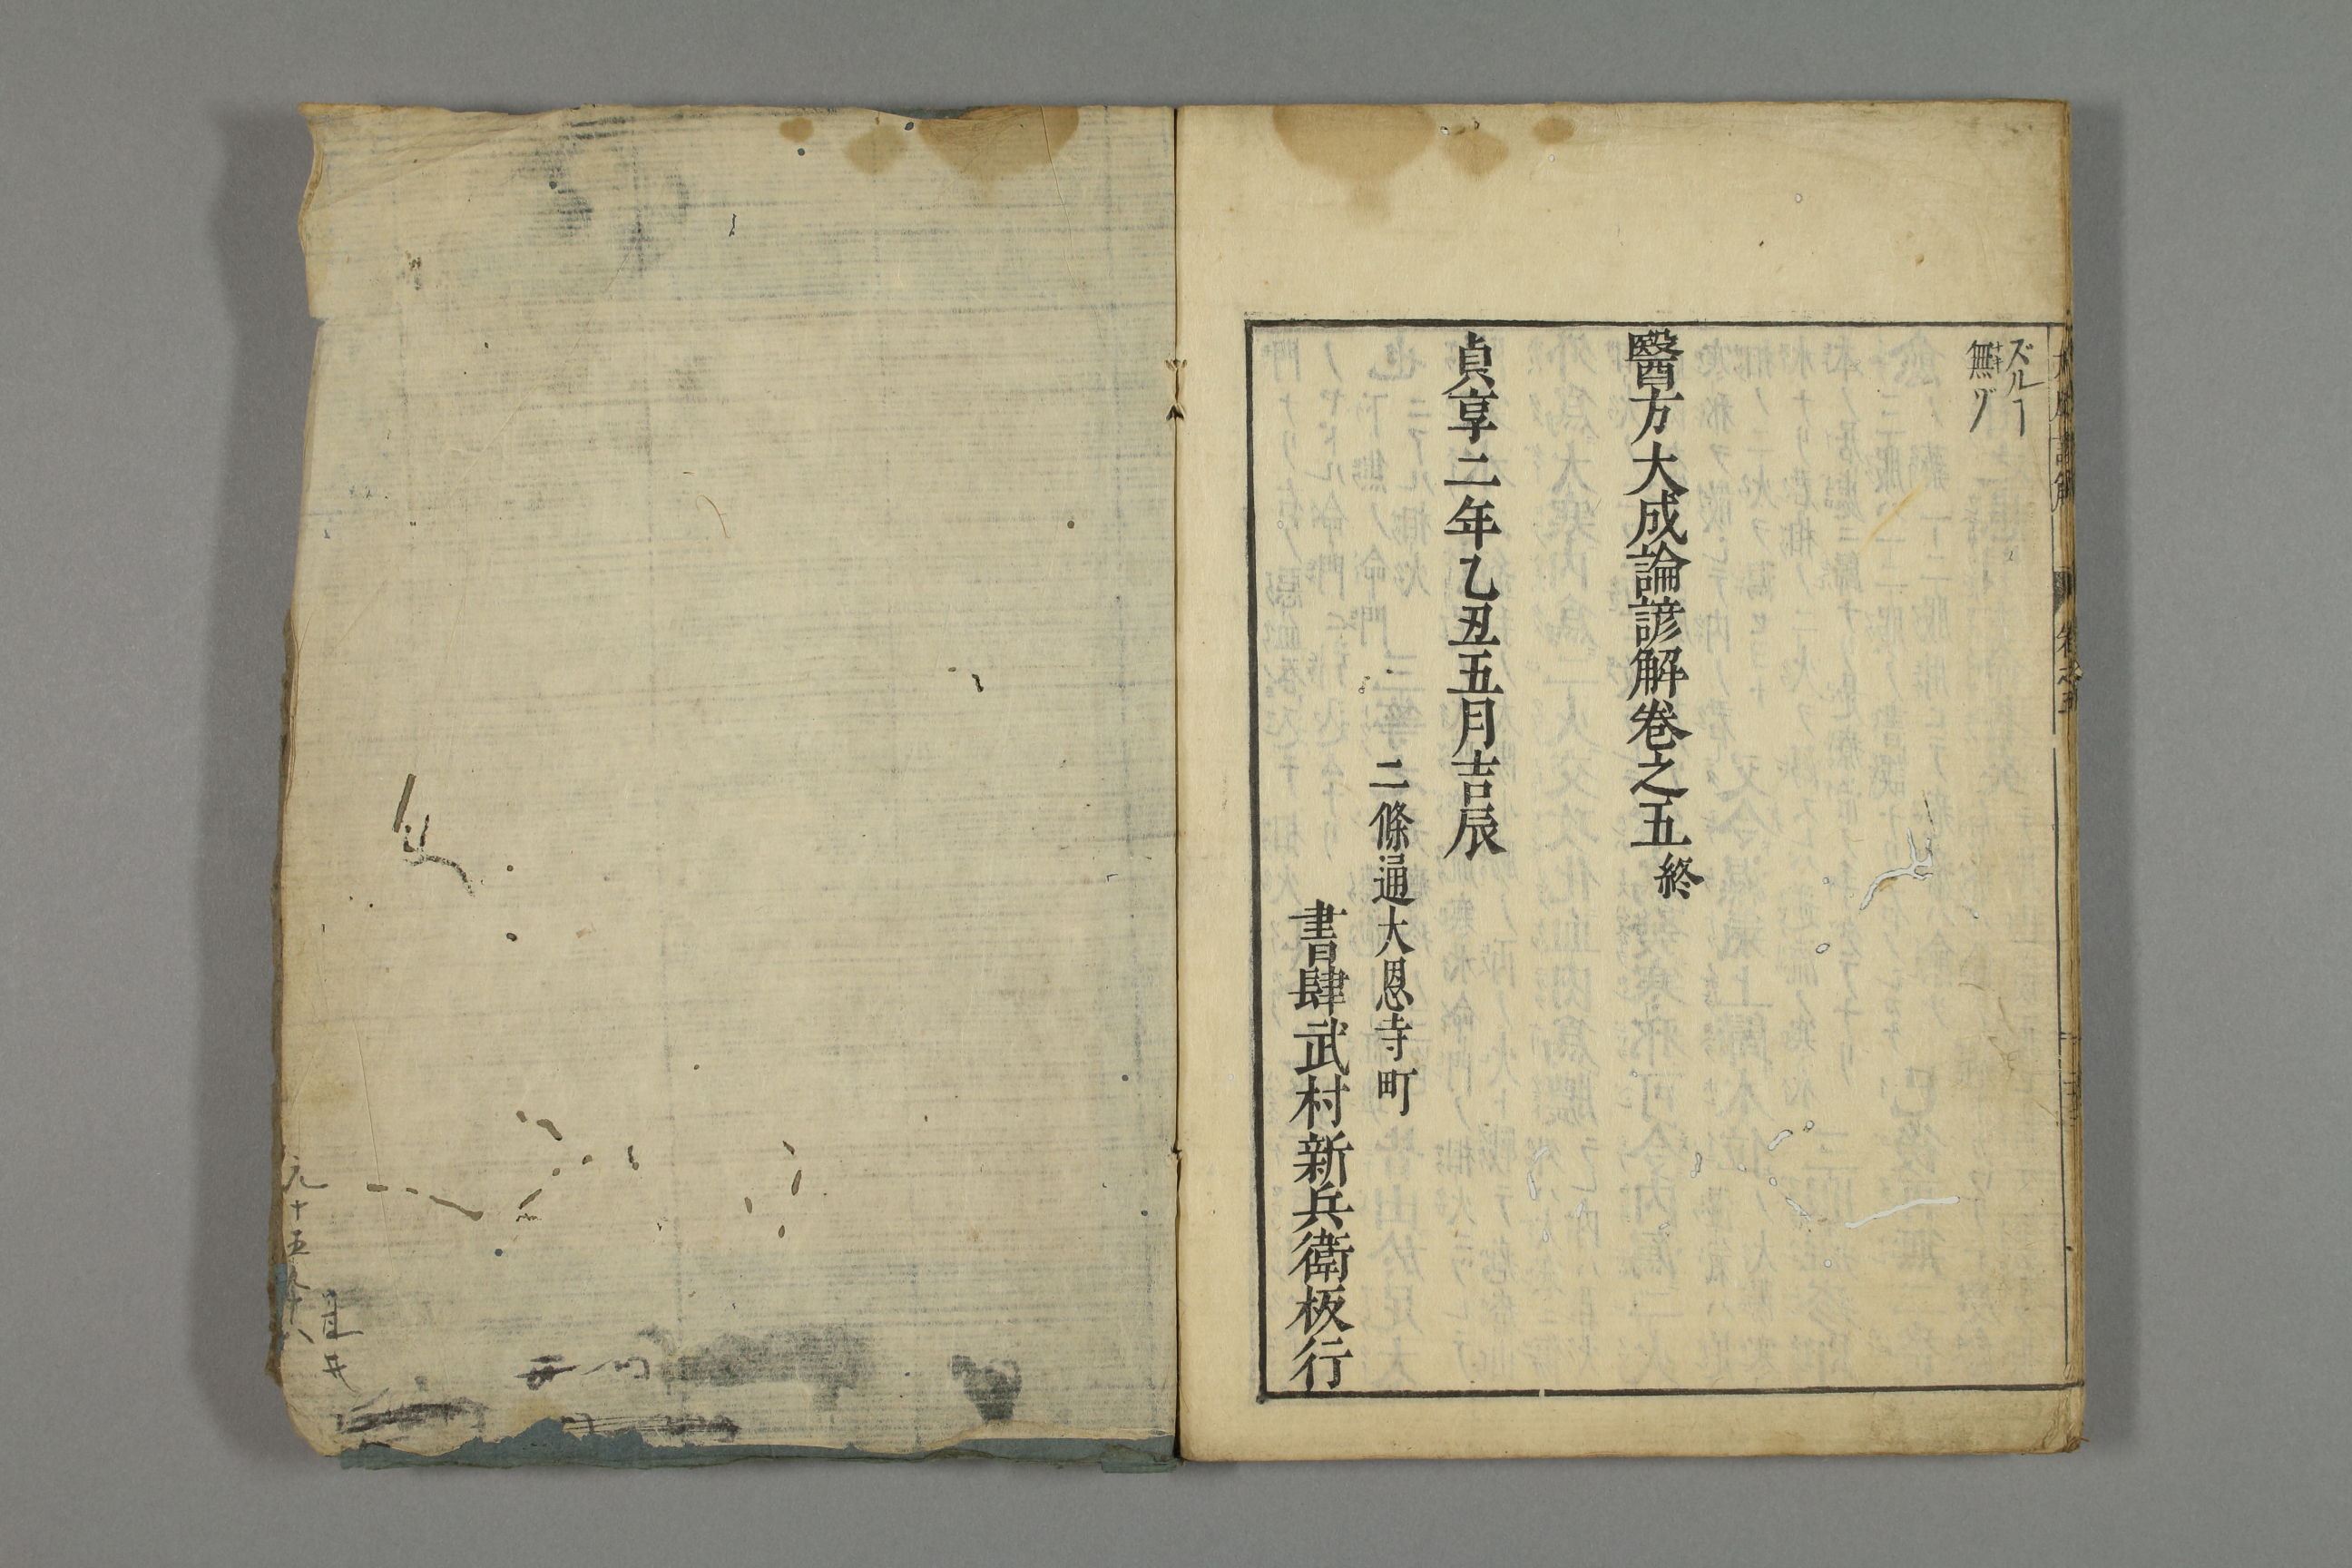 ズルヿ
無ヅ
醫方大成論諺解卷之五終
貞享二年乙丑五月吉辰
二條通大恩寺町
書肆武村新兵衛板行